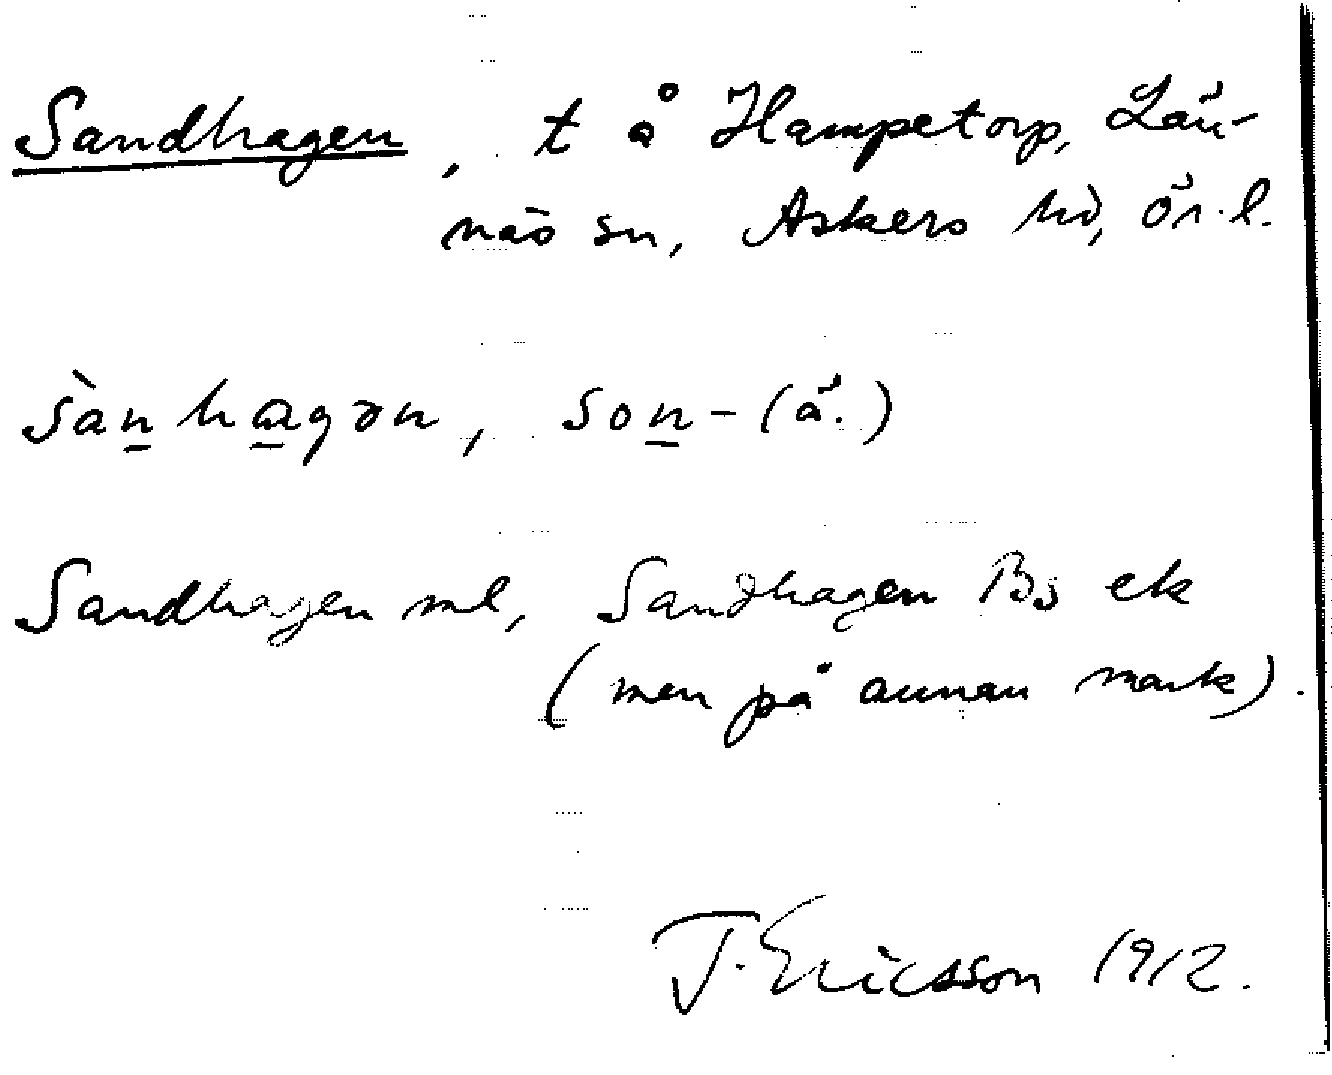 Sandhagen, t å Hampetorp, Län-
näs sn, Askers hd, Ör. l.
sàn̲ha̲gən, son̲- (ä.)
Sandhagen ml, Sandhagen Bs ek
(men på annan mark).
T. Ericsson 1912.